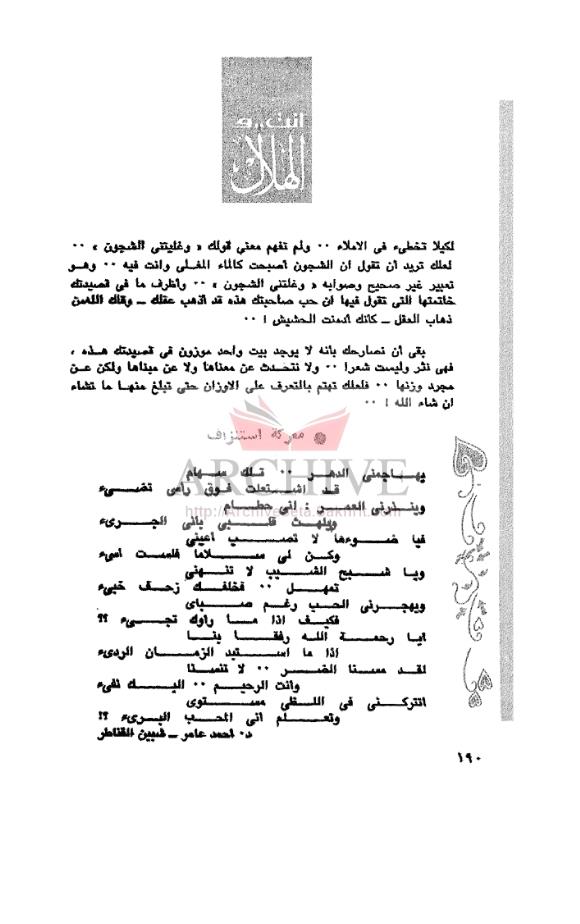 أنت .. و
الهلال
لكيلا تخطىء فى الاملاء ٠٠ ولم تفهم معنى قولك « وغليتنى الشجون » ٠٠
لعلك تريد أن تقول ان الشجون أصبحت كالماء المغلى وانت فيه ٠٠ وهو
تعبير غير صحيح وصوابه « وغلتنى الشجون » ٠٠ وأظرف ما فى قصيدتك
خاتمتها التى تقول فيها ان حب صاحبتك هذه قد أذهب عقلك ــ وقاك الله من
ذهاب العقل ــ كانك أدمنت الحشيش ! ٠٠
بقى أن نصارحك بأنه لا يوجد بيت واحد موزون فى قصيدتك هذه ،
فهى نثر وليست شعرا ٠٠ ولا نتحدث عن معناها ولا عن مبناها ولكن عن
مجرد وزنها ٠٠ فلعلك تهتم بالتعرف على الاوزان حتى تبلغ منها ما تشاء
ان شاء الله ! ٠٠
معركة استنزاف
ARCHIVE
http://Archivebeta.Sakhrit.com
يهاجمنى الدهر ٠٠ تلك سهام
قد اشتعلت فوق رأسى تضىء
وينذرنى العمر : انى حطام
ويلهث قلبى بأنى الجرىء
فيا ضوءها لا تصب أعينى
وكن لى سلاما فلست أسىء
ويا شبح الشيب لا تنهنى
تمهل ٠٠ فخلفك زحف خبىء
ويهجرنى الحب رغم صباى
فكيف اذا ما رأوك تجىء ؟؟
أيا رحمة الله رفقا بنا
اذا ما استبد الزمان الردىء
لقد مسنا الضر ٠٠ لا تنسنا
وانت الرحيم ٠٠ اليك نفىء
اتتركنى فى اللظى مستوى
وتعلم أنى المحب البرىء ؟!
د٠ أحمد عامر ــ شبين القناطر
١٩٠